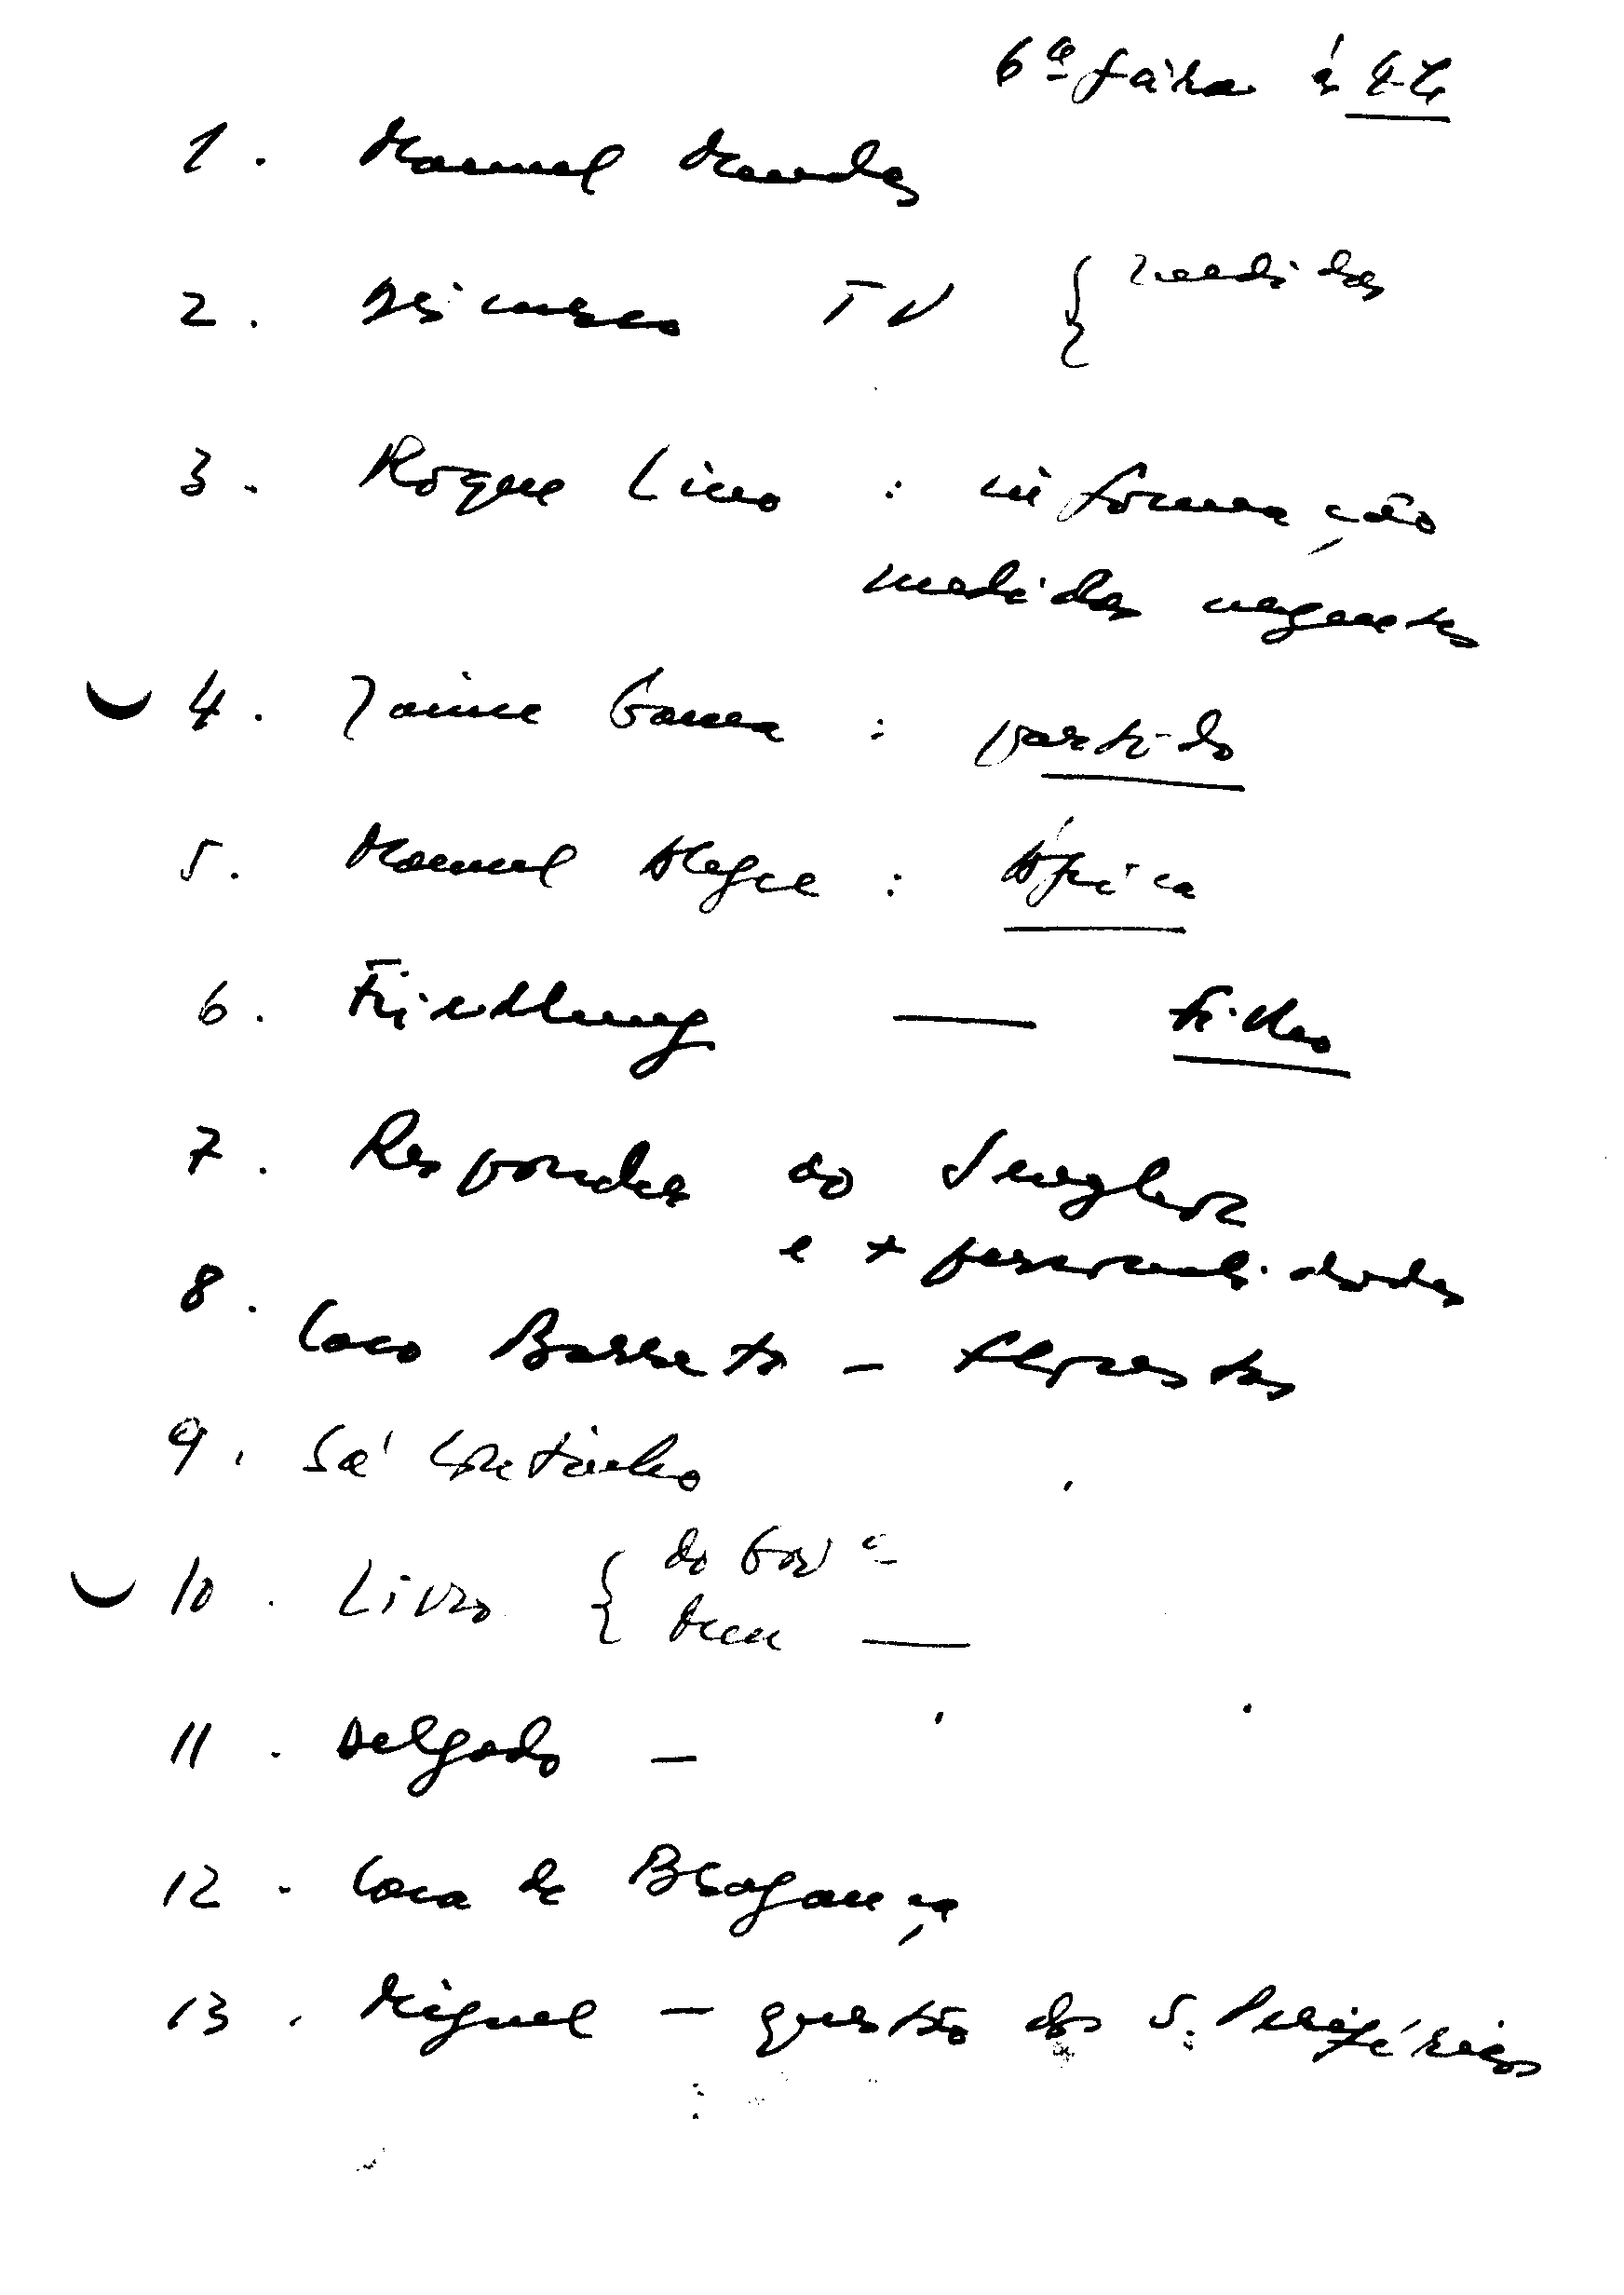 6ª feira às 4h
1. Manuel Mendes
2. Discurso TV { medidas
3. Roque Lino : informação
medidas urgentes
4. Jaime Gama : partido
5. Manuel Alegre : África
6. Friedlung —
7. Responder ao Senghor
e + personalidades
8. Coco Barreto - florestas
9. Sá Coutinho
10. Livro { do Gov º
meu —
11. Delgado —
12. Casa de Bragança
13. Miguel — questão dos S. Periféricos